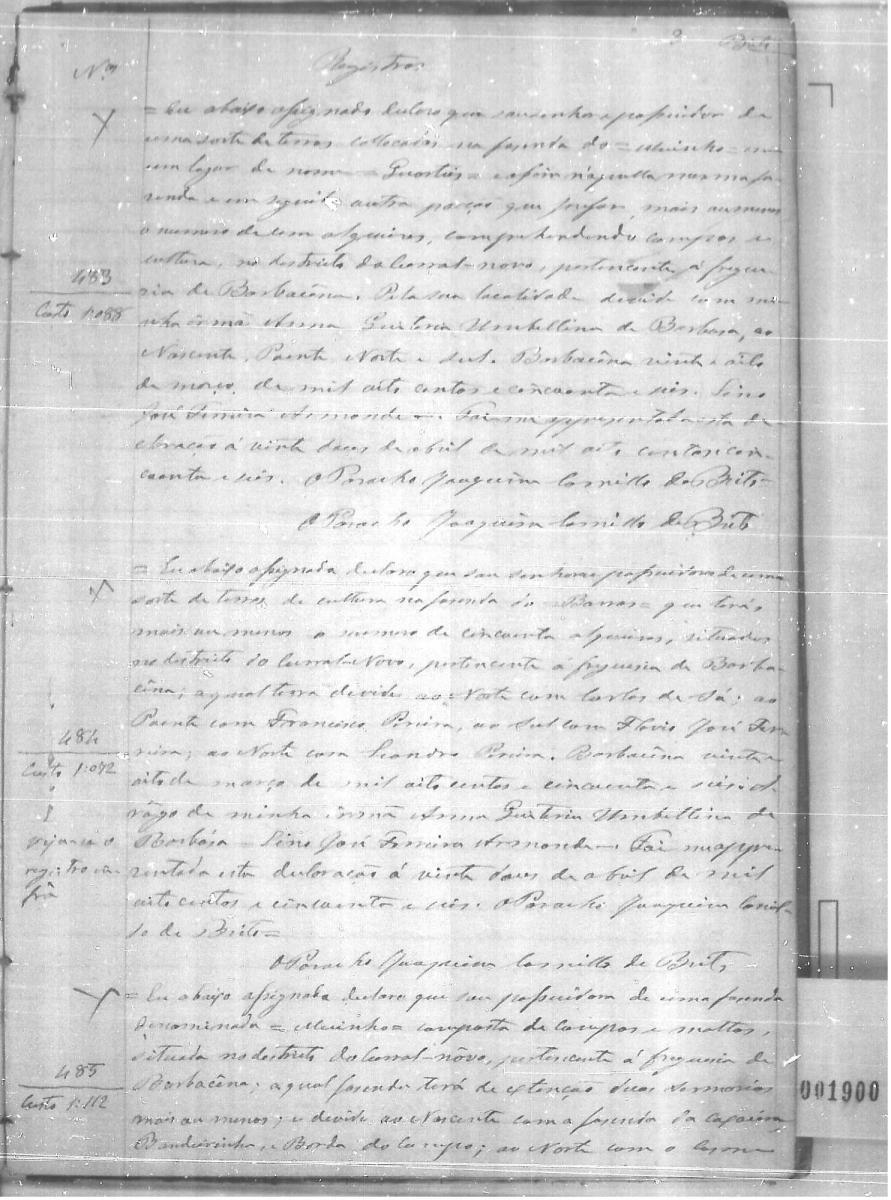 3 Brito
Nos
Registros
= Eu abaixo assignado declaro que sou senhor e possuidor de
uma sorte de terras collocadas na fasenda do = Moinho = em
um lugar de nome = Quarteis = e n'aquella mesma fa-
senda e em seguida outra porção que mais ou menos
o numero de cem alqueires, comprehendendo campos e
cultura, no destricto do Corral-novo, pertencente á fregue-
sia de Barbacêna. Pela sua localidade devide com mi-
nha irmã Anna Quiteria Umbellina de Barbosa, ao
Nascente, Poente Norte e Sul. Barbacêna vinte e oito
de março de mil oito centos e cincoenta e seis. Lino
José Ferreira Armonde = Foi-me appresentada esta de-
claração á vinte dous de abril de mil oito centos cin-
coenta e seis. O Parocho Joaquim Camillo de Brito =
O Parocho Joaquim Camillo de Brito
483
Custo 1:088
= Eu abaixo assignada declaro que sou senhora e possuidora de uma
sorte de terras de cultura na fasenda do = Barros = que terá
mais ou menos o numero de cincoenta alqueires, situados
no destricto do Curral Novo, pertencente á freguesia de Barba-
cêna; a qual terra devide ao Norte com Carlos de Sá; ao
Poente com Francisco Pereira, ao Sul com Flavio José Fer-
reira; ao Norte com Leandro Pereira. Barbacêna vinte e
oito de março de mil oito centos e cincoenta e seis. A
rôgo de minha irmã Anna Quiteria Umbellina de
Barbósa = Lino José Ferreira Armonde = Foi me appre-
sentada esta declaração á vinte dous de abril de mil
oito centos e cincoenta e seis. O Parocho Joaquim Camil-
lo de Brito =
O Parocho Joaquim Camillo de Brito
484
Custo 1:072
veja-se o
registro
= Eu abaixo assignada declaro que sou possuidora de uma fasenda
denominada = Moinho = composta de campos e mattos,
situada no destricto do Corral-nôvo, pertencente á freguesia de
Barbacêna; a qual fasenda terá de extenção duas sesmarias
mais ou menos; e devide ao Nascente com a fasenda da
Bandeirinha, e Borda do Campo; ao Norte com o
485
Custo 1:112
001900